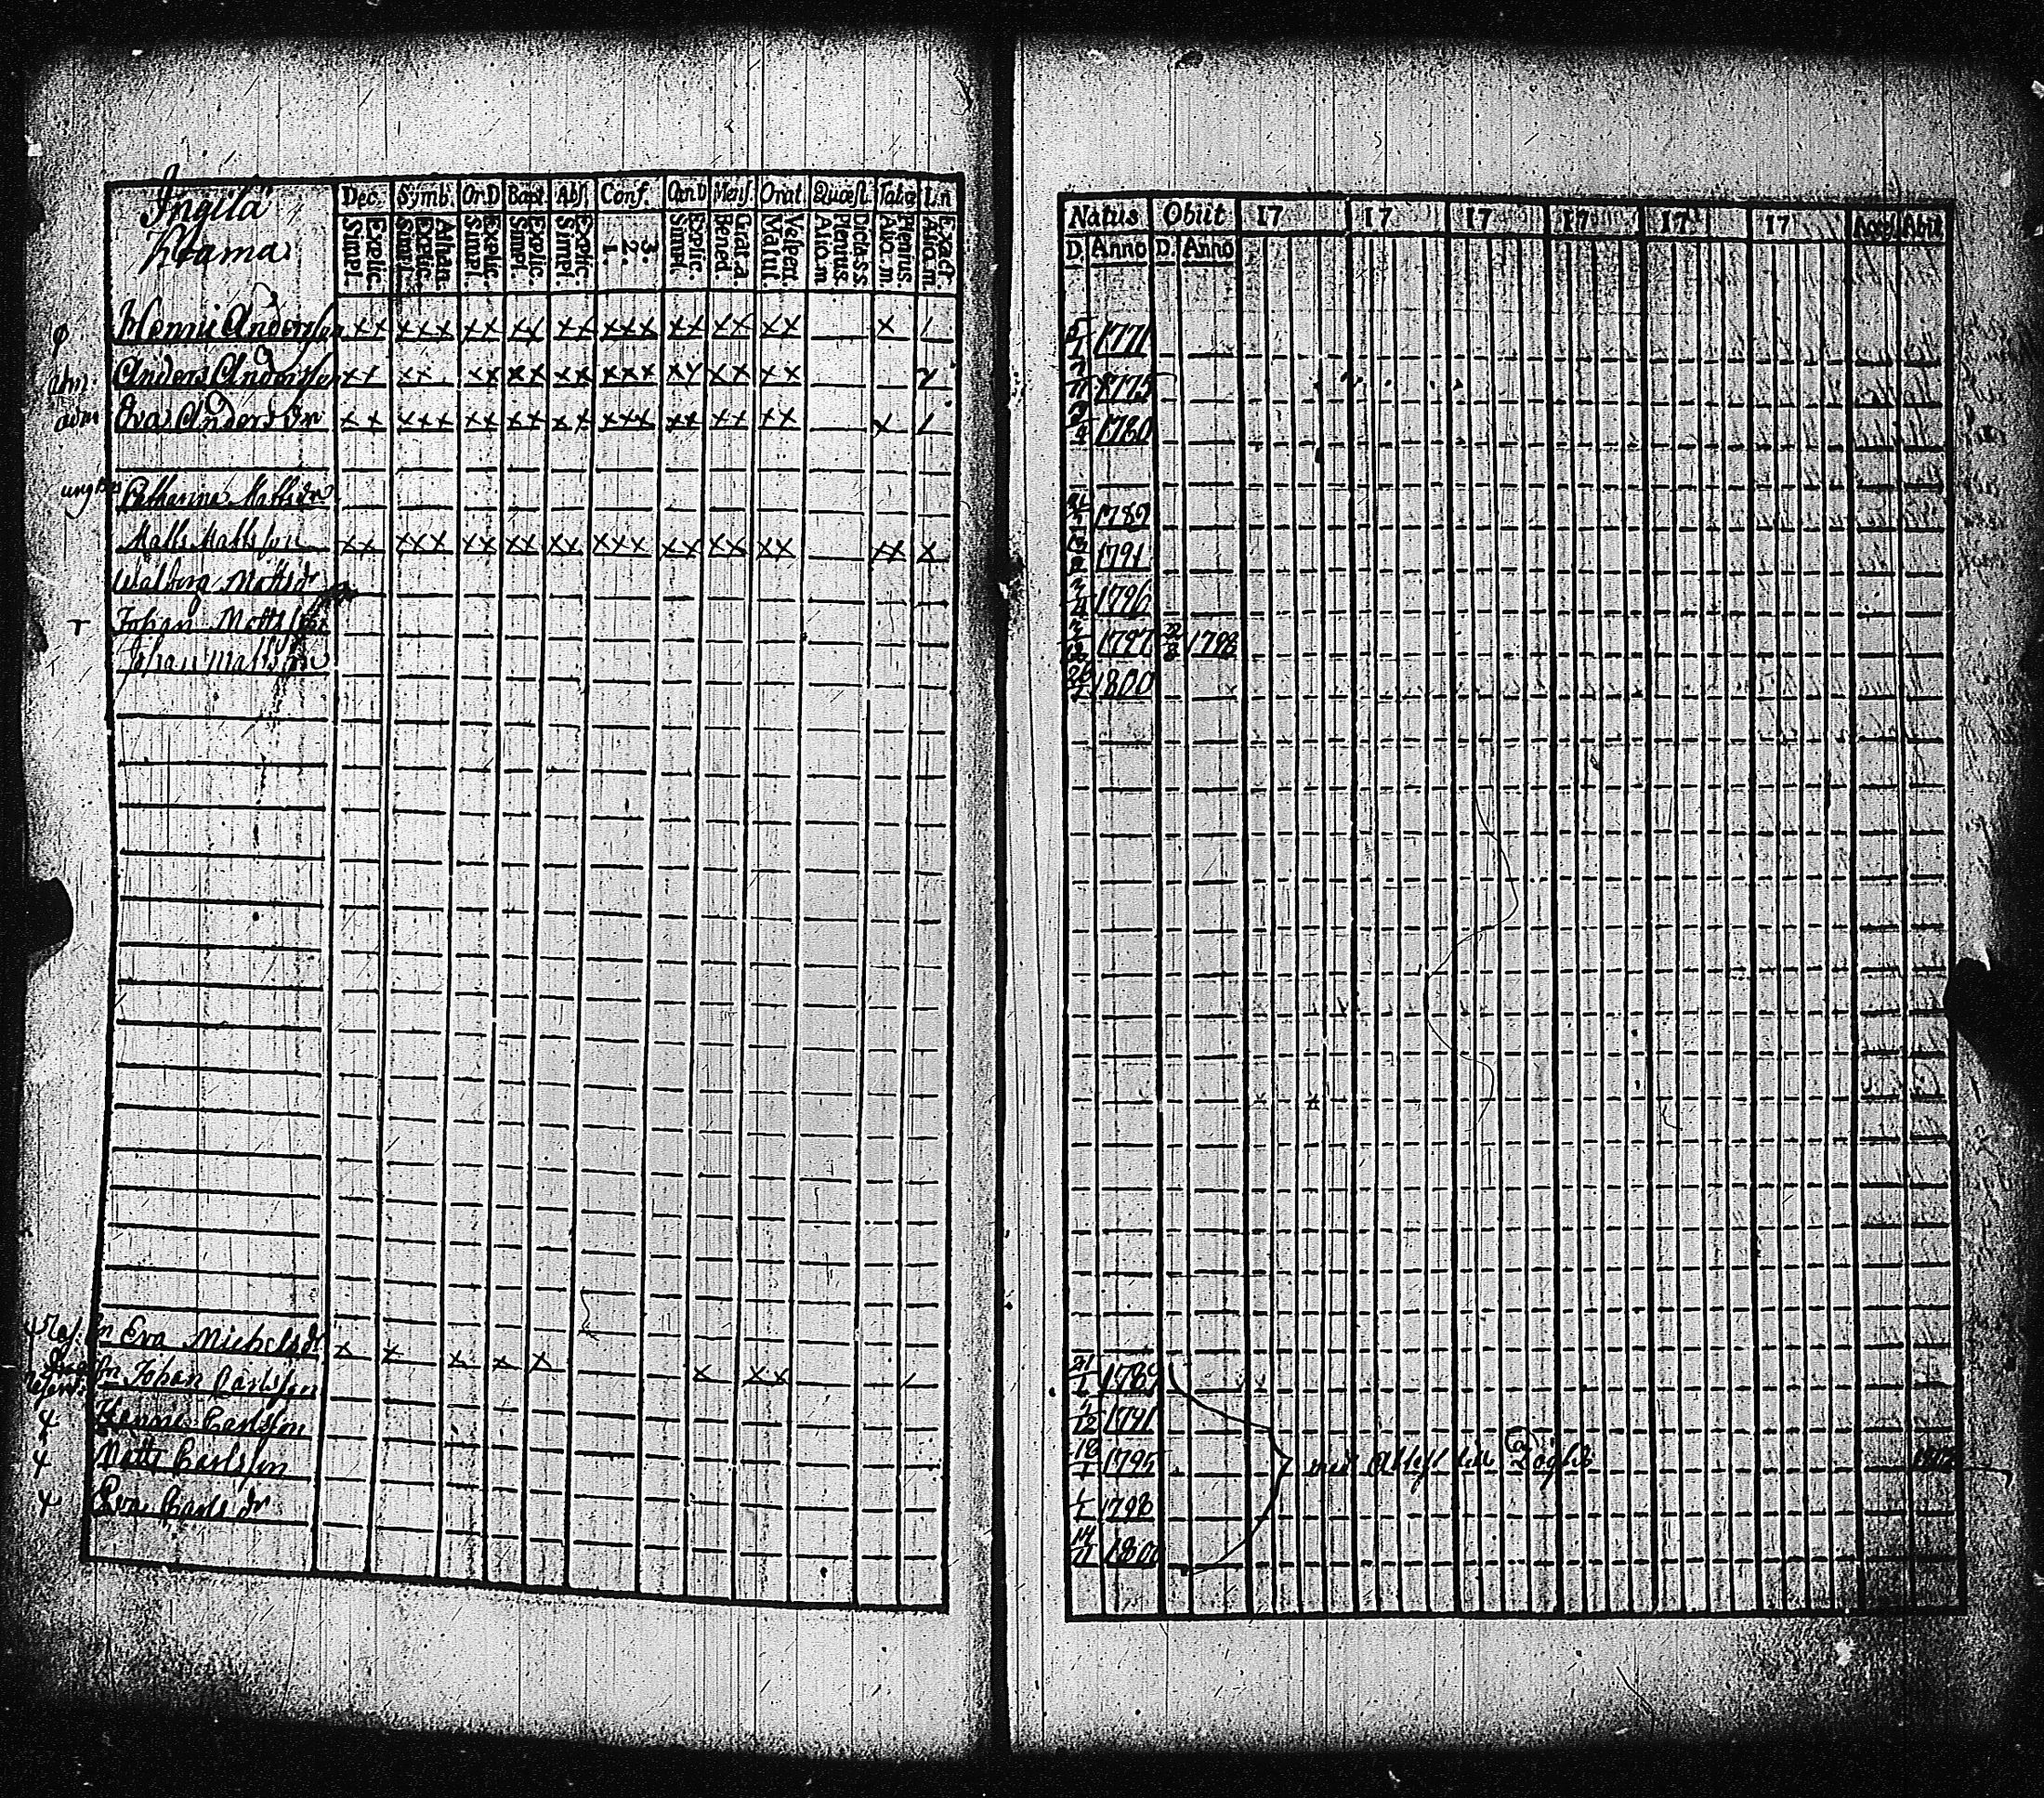 Ingilä
Krama
Dec. Symb. Or.D Bapt. Abs. Conf. Cœn.D Mens. Orat. Quæst. Tab.œ Lin
Explic. Simpl. Athan. Explic. Simpl. Explic. Simpl. Explic. Simpl. Explic. Simpl. 3. 2. 1. Explic. Simpl. Grat.a. Bened. Vesperi. Matut. Dicta.s.s. Plenius. Aliq.m Plenius. Aliq.m. Exact. Aliq.m.
Henric Andersson xx xxx xx xx xx xxx xx xx xx x /
adm. Anders Andersson xx xx xx xx xx xxx xx xx xx
adm Eva Andersdr xx xxx xx xx xx xxx xx xx xx x /
Catharina Mattsdr
Matts Mattsson xx xxx xx xx xx xxx xx xx xx xx x
Walborg Mattsdr
Johan Mattsson
Johan Mattsson
Eva Michelsdr x x x x x x xx
Johan Carlsson
Carlsson
Matts Carlsson
Eva Carlsdr
Natus Obiit 17 17 17 17 17 17 Acces. Abiit
D. Anno D. Anno
1771
1775
1780
1789
1791
1796
1797 1798
1800
1769
4/12 1791
1795 med Attest till
1798
14/11 1800